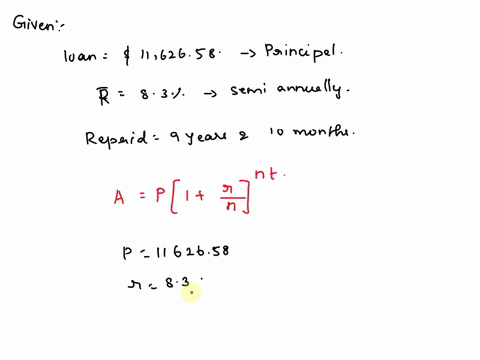 Given:-
loan = $ 11,626.58. → Principal.
R = 8.3% → semi annually.
Reperid = 9 years & 10 months.
A = P[1 + r/n]^nt.
P = 11626.58
r = 8.3.